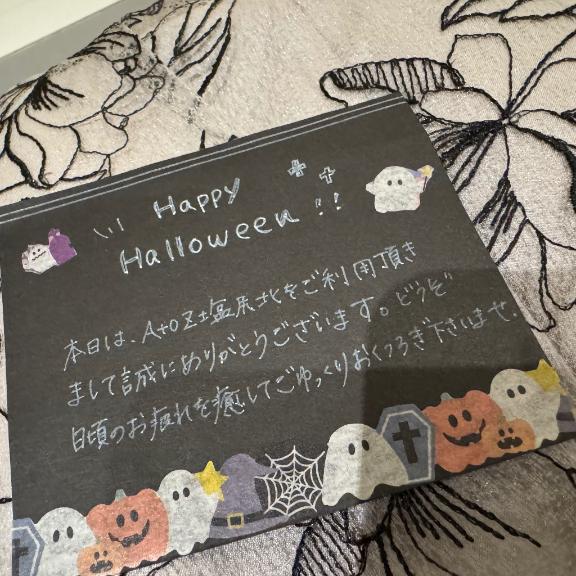 Happy
Halloween!!
本日は、AtoZ塩尻北をご利用頂き
まして誠にありがとうございます。どうぞ
日頃のお疲れを癒してごゆっくりおくつろぎ下さいませ.